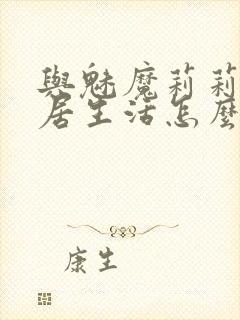 與魅魔莉莉
居生活怎麼
康生